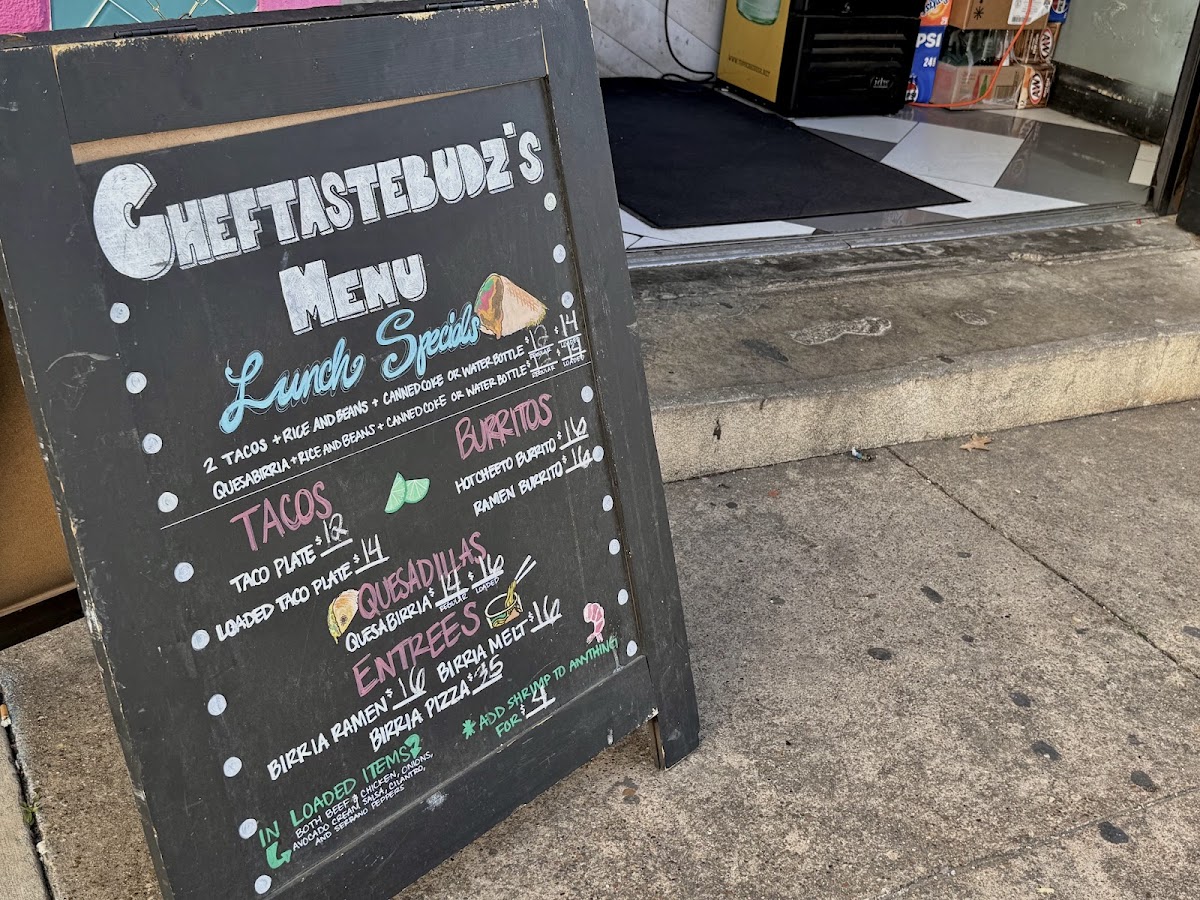 CHEFTASTEBUDZ'S
MENU
Lunch Specials
2 TACOS + RICE AND BEANS + CANNED COKE OR WATER BOTTLE $12 REGULAR $14 LOADED
QUESABIRRIA + RICE AND BEANS + CANNED COKE OR WATER BOTTLE $12 REGULAR $14 LOADED
BURRITOS
HOTCHEETO BURRITO $16
RAMEN BURRITO $16
TACOS
TACO PLATE $12
LOADED TACO PLATE $14
QUESADILLAS
QUESABIRRIA $14 REGULAR $16 LOADED
ENTREES
BIRRIA RAMEN $16
BIRRIA MELT $16
BIRRIA PIZZA $35
* ADD SHRIMP TO ANYTHING
FOR $4
IN LOADED ITEMS?
BOTH BEEF & CHICKEN, ONIONS,
AVOCADO CREAM SALSA, CILANTRO,
AND SERRANO PEPPERS
PSI
24
A&W
A&W